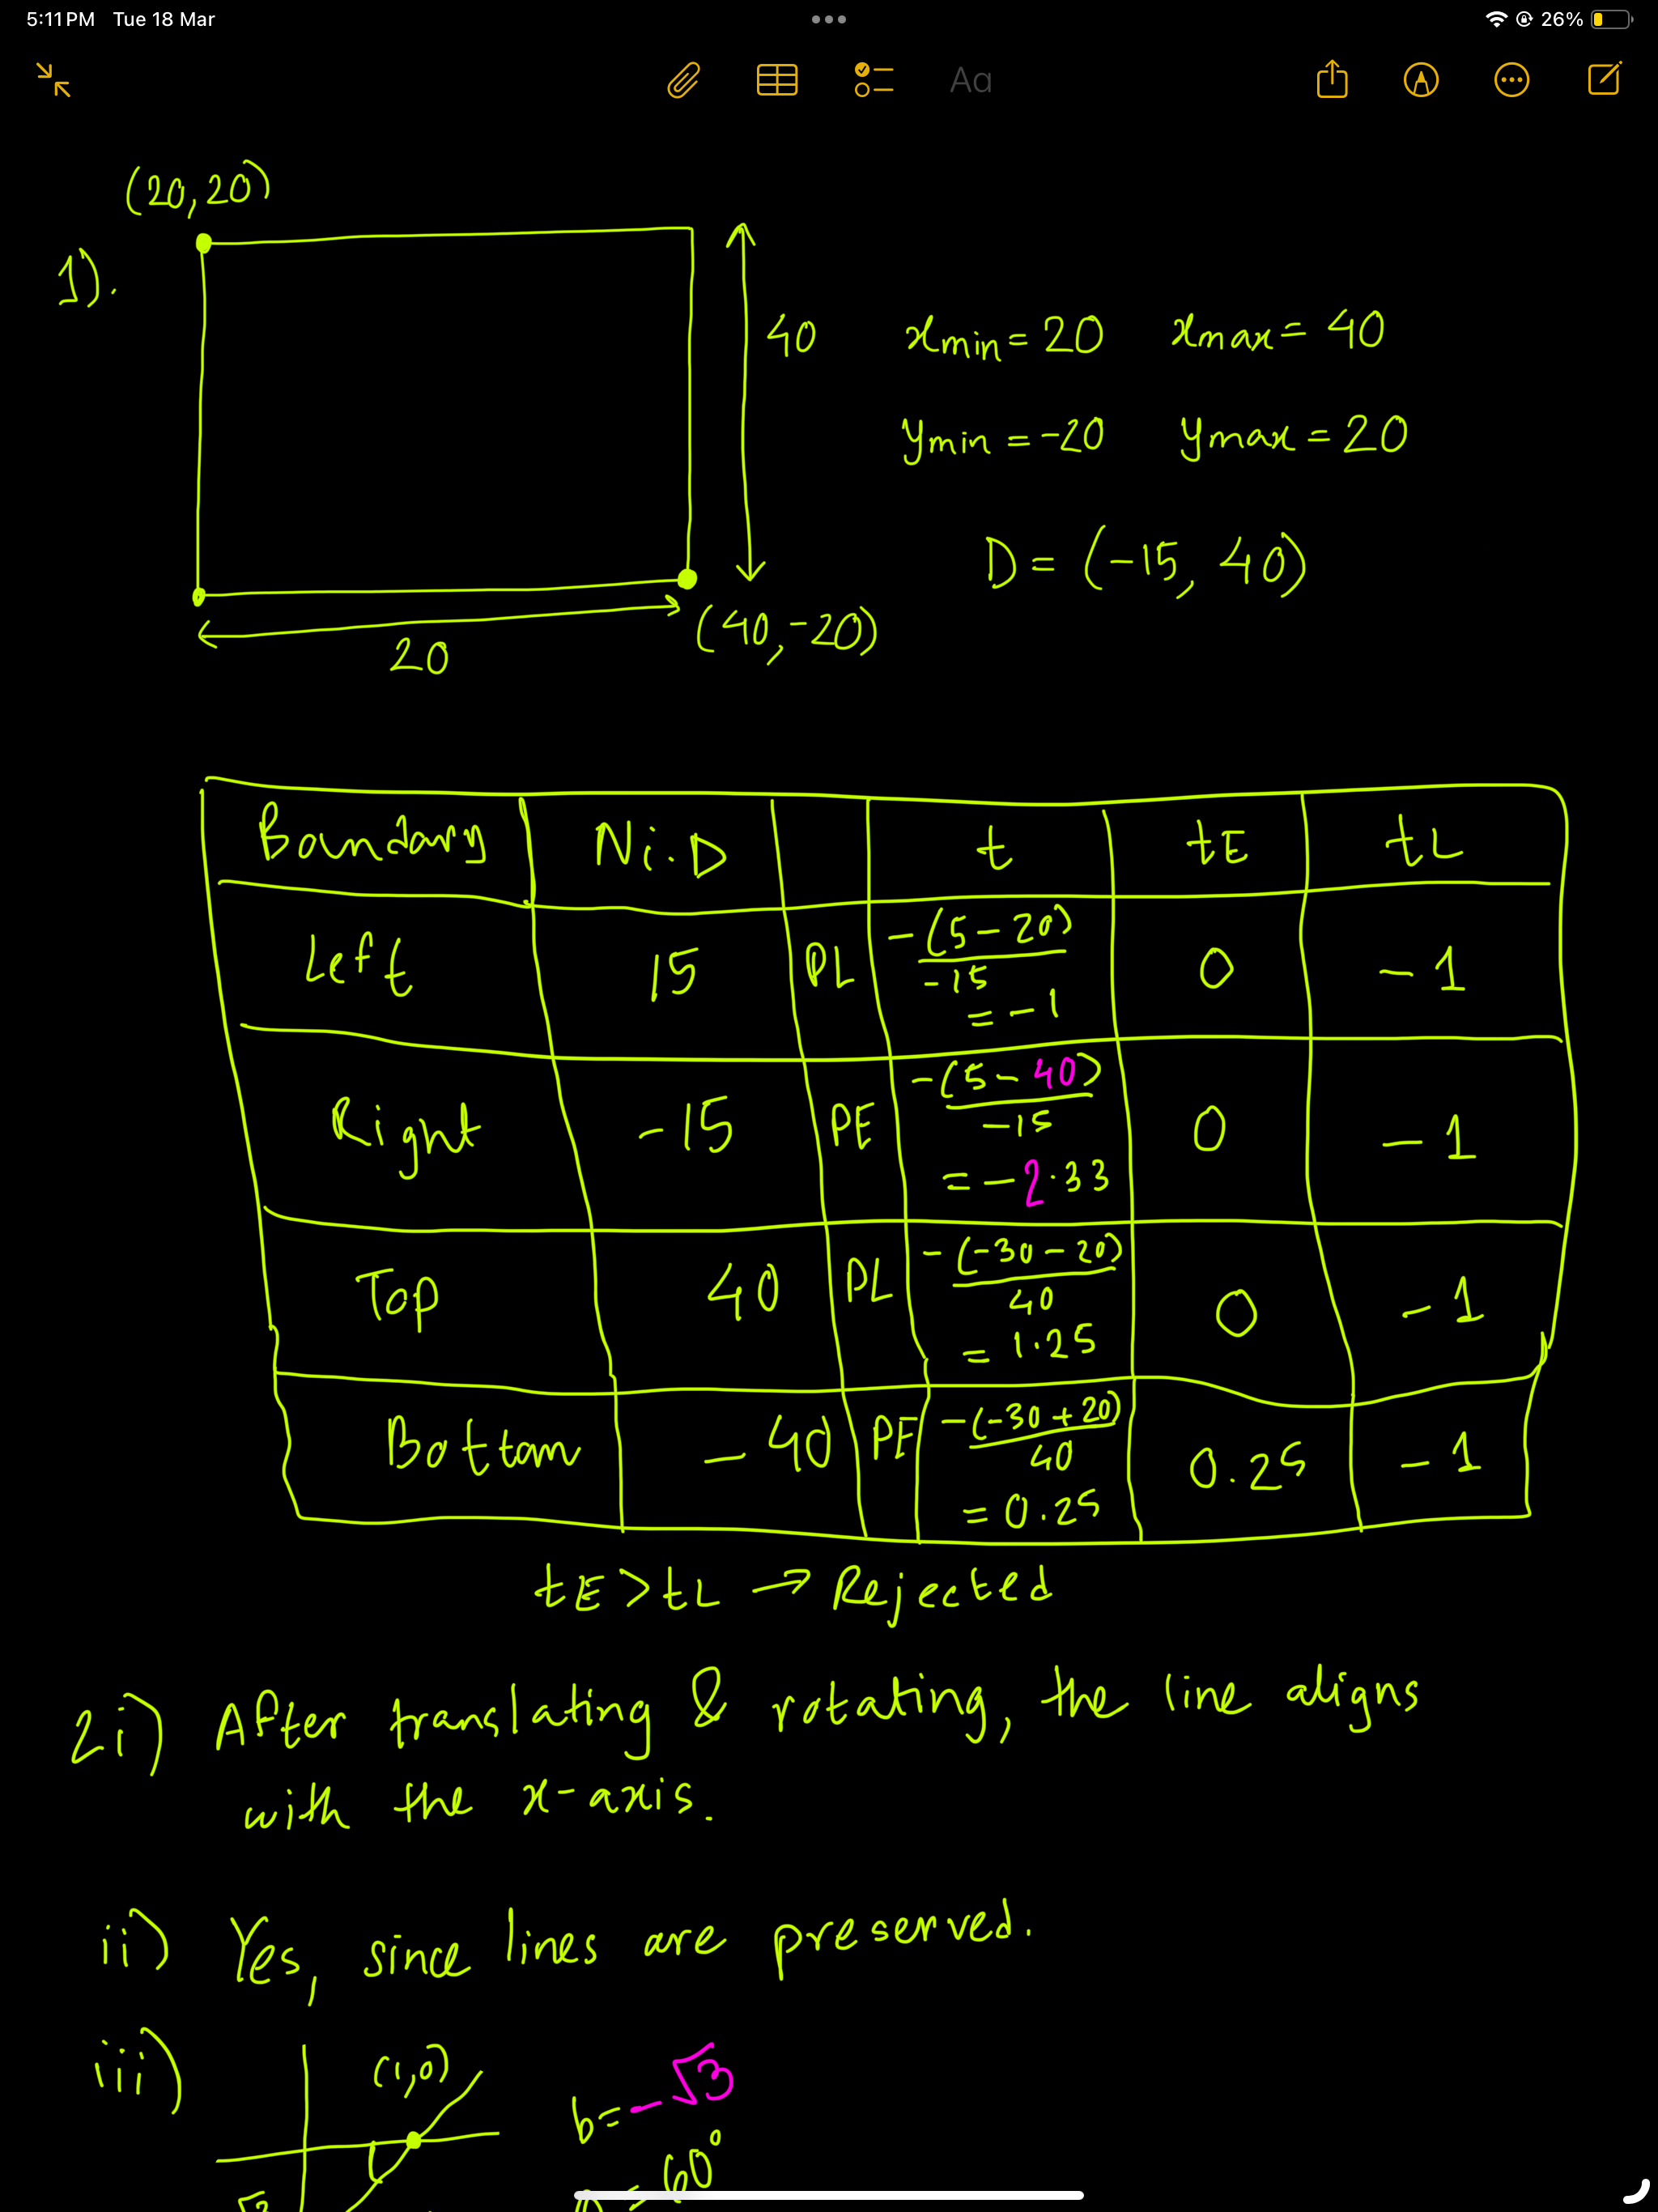 5:11 PM Tue 18 Mar
26%
Aa
(20,20)
1).
40
xmin = 20 xmax = 40
ymin = -20 ymax = 20
D = (-15, 40)
(40,-20)
20
Boundary Ni.D t tE tL
Left 15 PL -(5-20)/-15 = -1 0 -1
Right -15 PE -(5-40)/-15 = -2.33 0 -1
Top 40 PL -(-30-20)/40 = 1.25 0 -1
Bottom -40 PE -(-30+20)/40 = 0.25 0.25 -1
tE > tL → Rejected
2i) After translating & rotating, the line aligns
with the x-axis.
ii) Yes, since lines are preserved.
iii) (1,0)
b = -√3
= 60°